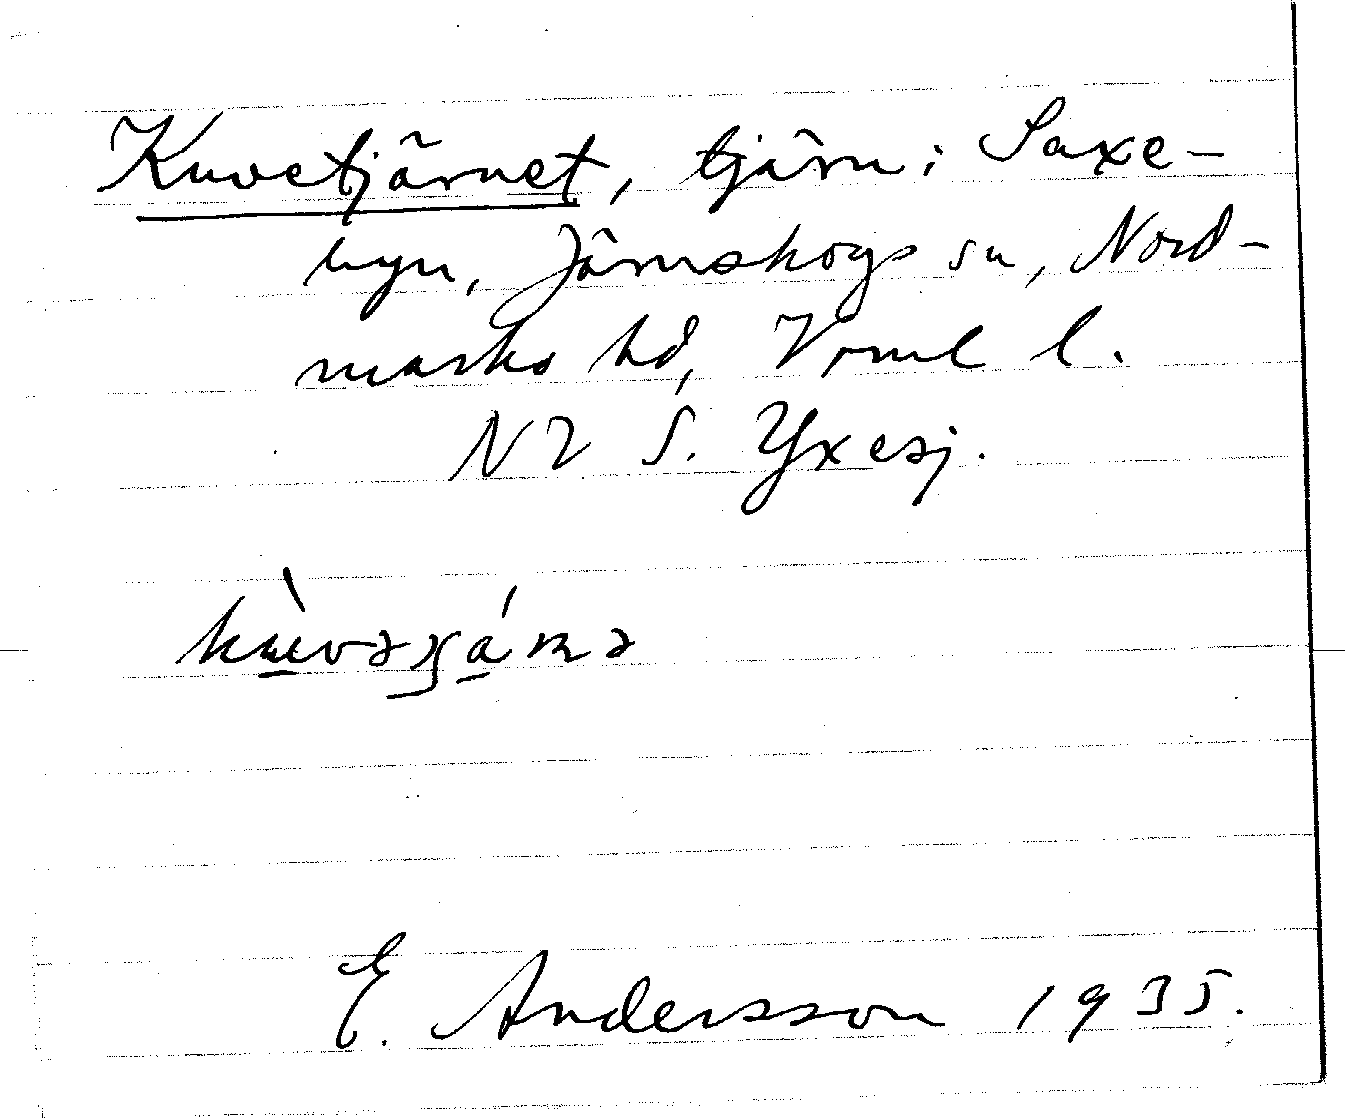 Kuvetjärnet, tjärn i Saxe-
byn, Järnskogs sn, Nord-
marks hd, Vrml l.
NV S. Yxesj.
E. Andersson 1935.